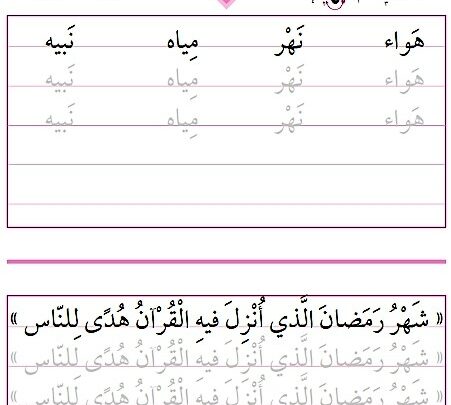 هَواء نَهْر مِياه نَبیه
هَواء نَهْر مِياه نَبیه
هَواء نَهْر مِياه نَبیه
« شَهْرُ رَمَضانَ الَّذي أُنْزِلَ فيهِ الْقُرْآنُ هُدًى لِلنّاس »
« شَهْرُ رَمَضانَ الَّذي أُنْزِلَ فيهِ الْقُرْآنُ هُدًى لِلنّاس »
« شَهْرُ رَمَضانَ الَّذي أُنْزِلَ فيهِ الْقُرْآنُ هُدًى لِلنّاس »